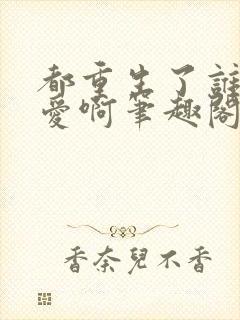 都重生了誰
愛啊筆趣閣
香奈兒不香